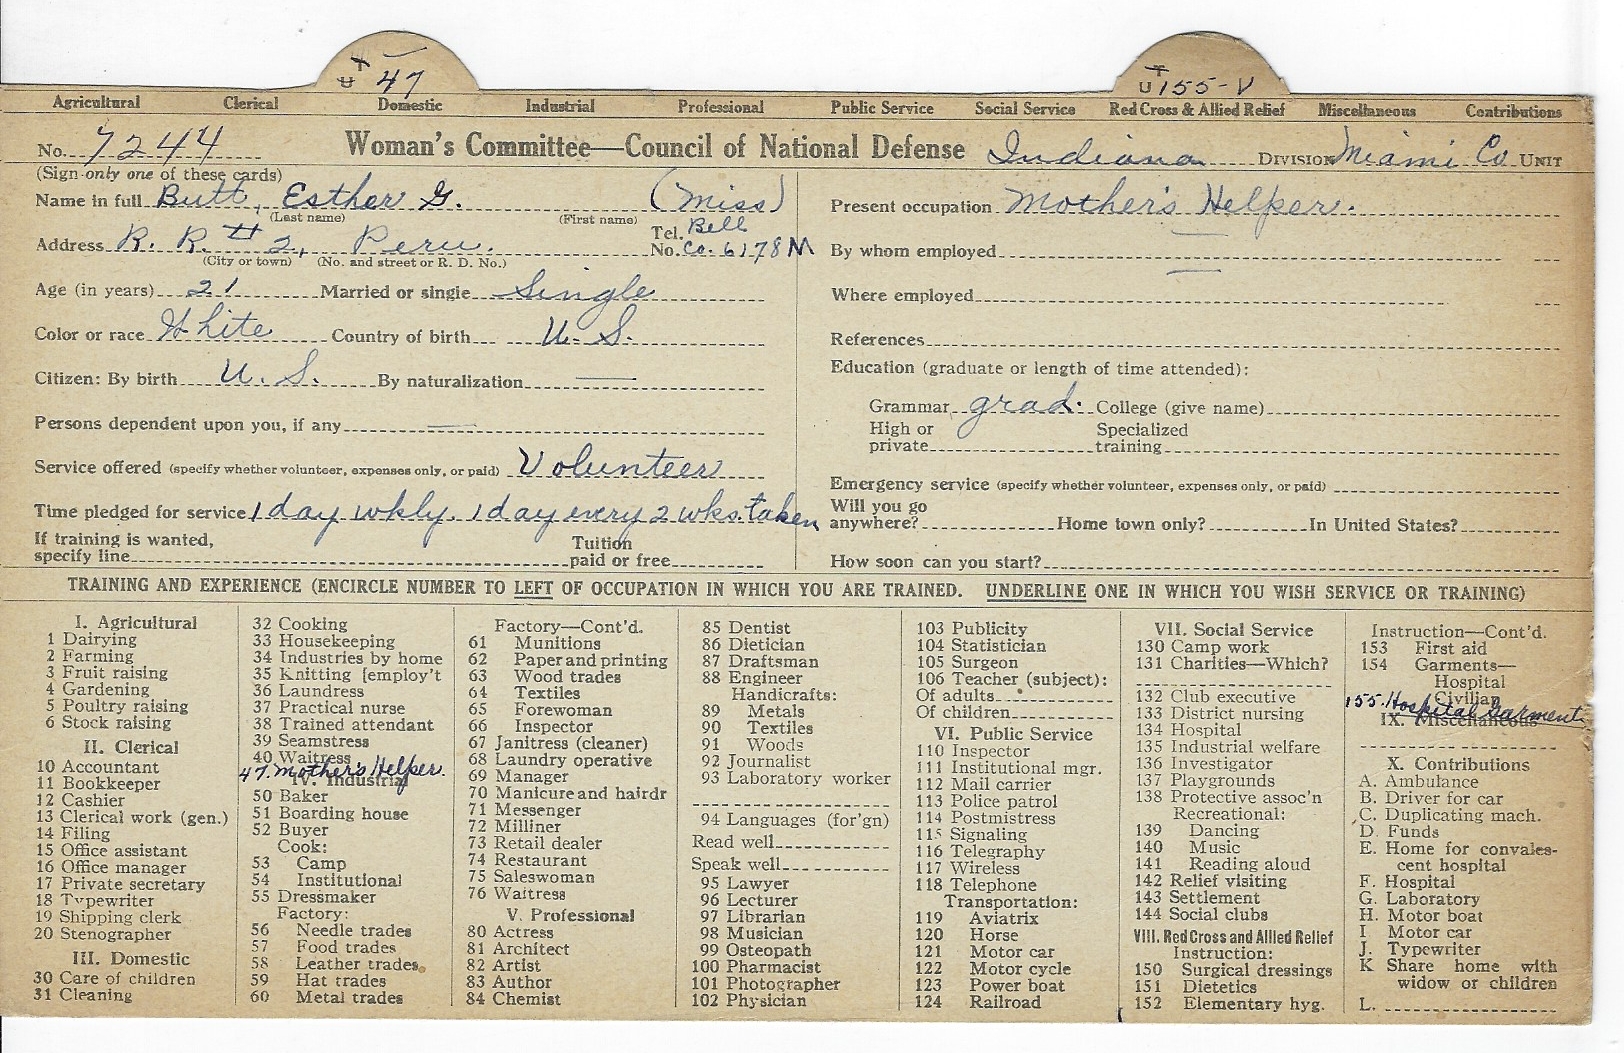 UT 47
UT 155-V
Agricultural Clerical Domestic Industrial Professional Public Service Social Service Red Cross & Allied Relief Miscellaneous Contributions
No. 7244 Woman's Committee—Council of National Defense Indiana DIVISION Miami Co UNIT
(Sign only one of these cards)
Name in full Butt, Esther G. (Miss)
(Last name) (First name)
Address R. R. # 2, Peru. Tel. No. Bell Co. 6178M
(City or town) (No. and street or R. D. No.)
Age (in years) 21 Married or single Single
Color or race White Country of birth U. S.
Citizen: By birth U. S. By naturalization —
Persons dependent upon you, if any —
Service offered (specify whether volunteer, expenses only, or paid) Volunteer
Time pledged for service 1 day wkly. 1 day every 2 wks. taken
If training is wanted, specify line Tuition paid or free
Present occupation Mother's Helper.
By whom employed —
Where employed —
References
Education (graduate or length of time attended):
Grammar grad. College (give name)
High or private Specialized training
Emergency service (specify whether volunteer, expenses only, or paid)
Will you go anywhere? Home town only? In United States?
How soon can you start?
TRAINING AND EXPERIENCE (ENCIRCLE NUMBER TO LEFT OF OCCUPATION IN WHICH YOU ARE TRAINED. UNDERLINE ONE IN WHICH YOU WISH SERVICE OR TRAINING)
I. Agricultural
1 Dairying
2 Farming
3 Fruit raising
4 Gardening
5 Poultry raising
6 Stock raising
II. Clerical
10 Accountant
11 Bookkeeper
12 Cashier
13 Clerical work (gen.)
14 Filing
15 Office assistant
16 Office manager
17 Private secretary
18 Typewriter
19 Shipping clerk
20 Stenographer
III. Domestic
30 Care of children
31 Cleaning
32 Cooking
33 Housekeeping
34 Industries by home
35 Knitting [employ't
36 Laundress
37 Practical nurse
38 Trained attendant
39 Seamstress
40 Waitress
47. Mother's Helper.
IV. Industrial
50 Baker
51 Boarding house
52 Buyer
Cook:
53 Camp
54 Institutional
55 Dressmaker
Factory:
56 Needle trades
57 Food trades
58 Leather trades
59 Hat trades
60 Metal trades
Factory—Cont'd.
61 Munitions
62 Paper and printing
63 Wood trades
64 Textiles
65 Forewoman
66 Inspector
67 Janitress (cleaner)
68 Laundry operative
69 Manager
70 Manicure and hairdr
71 Messenger
72 Milliner
73 Retail dealer
74 Restaurant
75 Saleswoman
76 Waitress
V. Professional
80 Actress
81 Architect
82 Artist
83 Author
84 Chemist
85 Dentist
86 Dietician
87 Draftsman
88 Engineer
Handicrafts:
89 Metals
90 Textiles
91 Woods
92 Journalist
93 Laboratory worker
94 Languages (for'gn)
Read well
Speak well
95 Lawyer
96 Lecturer
97 Librarian
98 Musician
99 Osteopath
100 Pharmacist
101 Photographer
102 Physician
103 Publicity
104 Statistician
105 Surgeon
106 Teacher (subject):
Of adults
Of children
VI. Public Service
110 Inspector
111 Institutional mgr.
112 Mail carrier
113 Police patrol
114 Postmistress
115 Signaling
116 Telegraphy
117 Wireless
118 Telephone
Transportation:
119 Aviatrix
120 Horse
121 Motor car
122 Motor cycle
123 Power boat
124 Railroad
VII. Social Service
130 Camp work
131 Charities—Which?
132 Club executive
133 District nursing
134 Hospital
135 Industrial welfare
136 Investigator
137 Playgrounds
138 Protective assoc'n
Recreational:
139 Dancing
140 Music
141 Reading aloud
142 Relief visiting
143 Settlement
144 Social clubs
VIII. Red Cross and Allied Relief
Instruction:
150 Surgical dressings
151 Dietetics
152 Elementary hyg.
Instruction—Cont'd.
153 First aid
154 Garments—
Hospital
Civilian
155. Hospital Garments
IX. Miscellaneous
X. Contributions
A. Ambulance
B. Driver for car
C. Duplicating mach.
D. Funds
E. Home for convales-
cent hospital
F. Hospital
G. Laboratory
H. Motor boat
I. Motor car
J. Typewriter
K Share home with
widow or children
L.